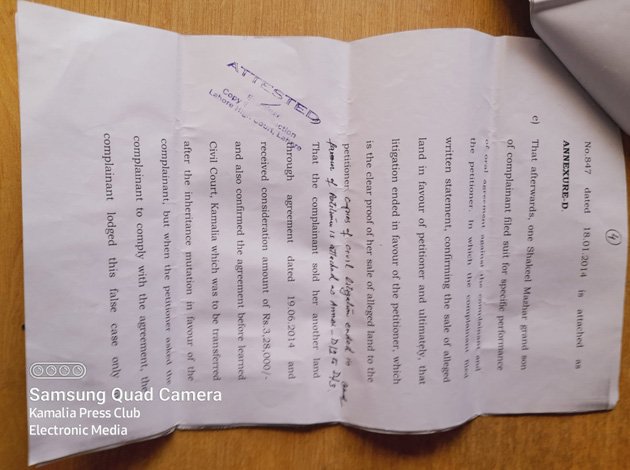 (4)
No.847 dated 18.01.2014 is attached as
ANNEXURE-D.
e) That afterwards, one Shakeel Mazhar grand son
of complainant filed suit for specific performance
of oral agreement against the complainant and
the petitioner, in which the complainant filed
written statement, confirming the sale of alleged
land in favour of petitioner and ultimately, that
litigation ended in favour of the petitioner, which
is the clear proof of her sale of alleged land to the
petitioner. Copies of civil litigation ended in
favour of Petitioner is attached as Annex-D/2 to D/3
That the complainant sold her another land
through agreement dated 19.06.2014 and
received consideration amount of Rs.3,28,000/-
and also confirmed the agreement before learned
Civil Court, Kamalia which was to be transferred
after the inheritance mutation in favour of the
complainant, but when the petitioner asked the
complainant to comply with the agreement, the
complainant lodged this false case only
ATTESTED
Copy
Lahore High Court, Lahore
Samsung Quad Camera
Kamalia Press Club
Electronic Media